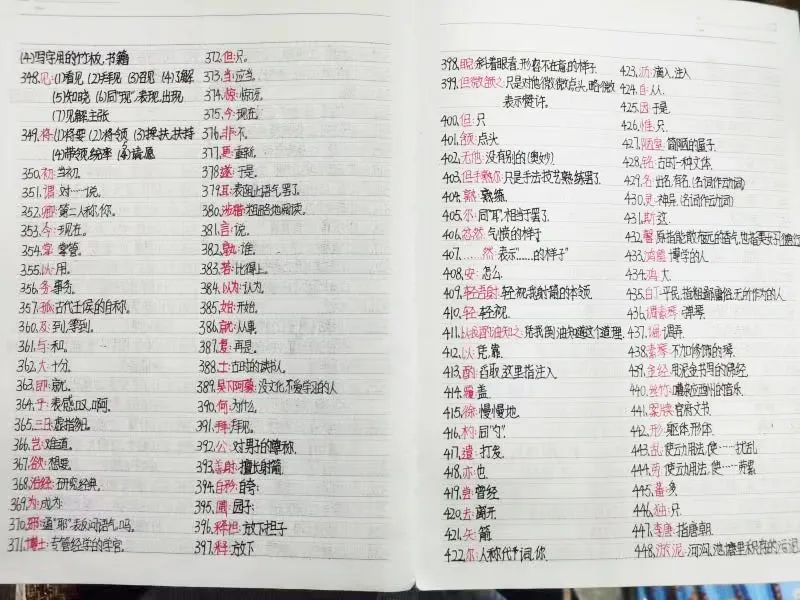 (4)写字用的竹板,书籍
348.见:(1)看见 (2)拜见 (3)召见 (4)了解
(5)知晓 (6)同"现",表现,出现
(7)见解,主张
349.将:(1)将要 (2)将领 (3)搀扶,扶持
(4)带领,统率 (5)请,愿
350.初:当初.
351.谓:对……说.
352.卿:第二人称,你.
353.今:现在.
354.掌:掌管.
355.以:用.
356.务:事务.
357.孤:古代王侯的自称.
360.及:到,等到.
361.与:和.
362.大:十分.
363.即:就.
364.乎:表感叹,啊.
365.三日:虚指多日.
366.岂:难道.
367.欲:想要.
368.治经:研究经典.
369.为:成为.
370.邪:通"耶"表反问语气,吗.
371.博士:专管经学的学官.
372.但:只.
373.当:应当.
374.惊:惊讶.
375.今:现在.
376.非:不.
377.更:重新.
378.遂:于是.
379.耳:表限止语气,罢了.
380.涉猎:粗略地阅读.
381.言:说.
382.孰:谁.
383.若:比得上.
384.以为:认为.
385.始:开始.
386.就:从事.
387.复:再,是.
388.士:古时的读书人.
389.吴下阿蒙:没文化不爱学习的人
390.何:为什么.
391.拜:拜见.
392.公:对男子的尊称.
393.善射:擅长射箭.
394.自矜:自夸.
395.圃:园子.
396.释担:放下担子
397.释:放下
398.睨:斜着眼看,形容不在意的样子.
399.但微颔之:只是对他微微点头,略微
表示赞许.
400.但:只.
401.颔:点头
402.无他:没有别的(奥妙)
403.但手熟尔:只是手法技艺熟练罢了.
404.熟:熟练.
405.尔:同"耳",相当于罢了.
406.忿然:气愤的样子
407.……然:表示"……的样子"
408.安:怎么.
409.轻吾射:轻视我射箭的本领.
410.轻:轻视.
411.以我酌油知之:凭我倒油知道这个道理.
412.以:凭,靠.
413.酌:舀取,这里指注入.
414.覆:盖.
415.徐:慢慢地.
416.杓:同"勺".
417.遣:打发.
418.亦:也
419.尝:曾经
420.去:离开
421.矢:箭
422.尔:人称代词,你.
423.沥:滴入,注入
424.自:从.
425.因:于是.
426.惟:只.
427.陋室:简陋的屋子.
428.铭:古时一种文体.
429.名:出名,有名.(名词作动词)
430.灵:神异.(名词作动词)
431.斯:这.
432.馨:原指能散布很远的香气,也指
433.鸿儒:博学的人.
434.鸿:大.
435.白丁:平民,指粗鄙庸俗,无所作为的人
436.调素琴:弹琴.
437.调:调弄.
438.素琴:不加修饰的琴.
439.金经:用泥金书写的佛经.
440.丝竹:
441.案牍:官府文书.
442.形:躯体,形体.
443.乱:使动用法,使……扰乱
444.劳:使动用法,使……劳累
445.蕃:多
446.独:只
447.李唐:指唐朝.
448.淤泥:河沟,池塘里积存的污泥